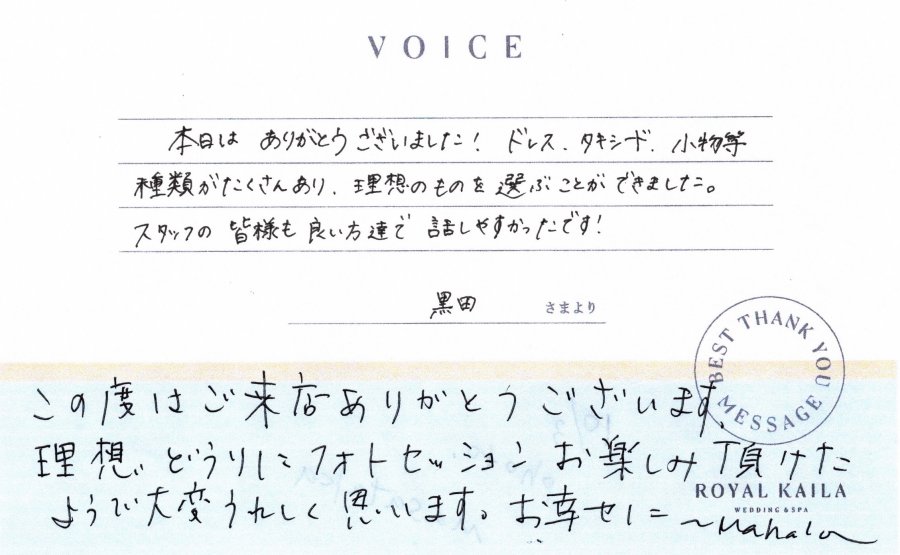 VOICE
本日は ありがとうございました! ドレス、タキシード、小物等
種類がたくさんあり、理想のものを選ぶことができました。
スタッフの皆様も良い方達で 話しやすかったです!
黒田 さまより
BEST THANK YOU MESSAGE
この度はご来店ありがとうございます。
理想どうりにフォトセッションお楽しみ頂けた
ROYAL KAILA
WEDDING & SPA
ようで大変うれしく思います。お幸せに 〜Mahalo